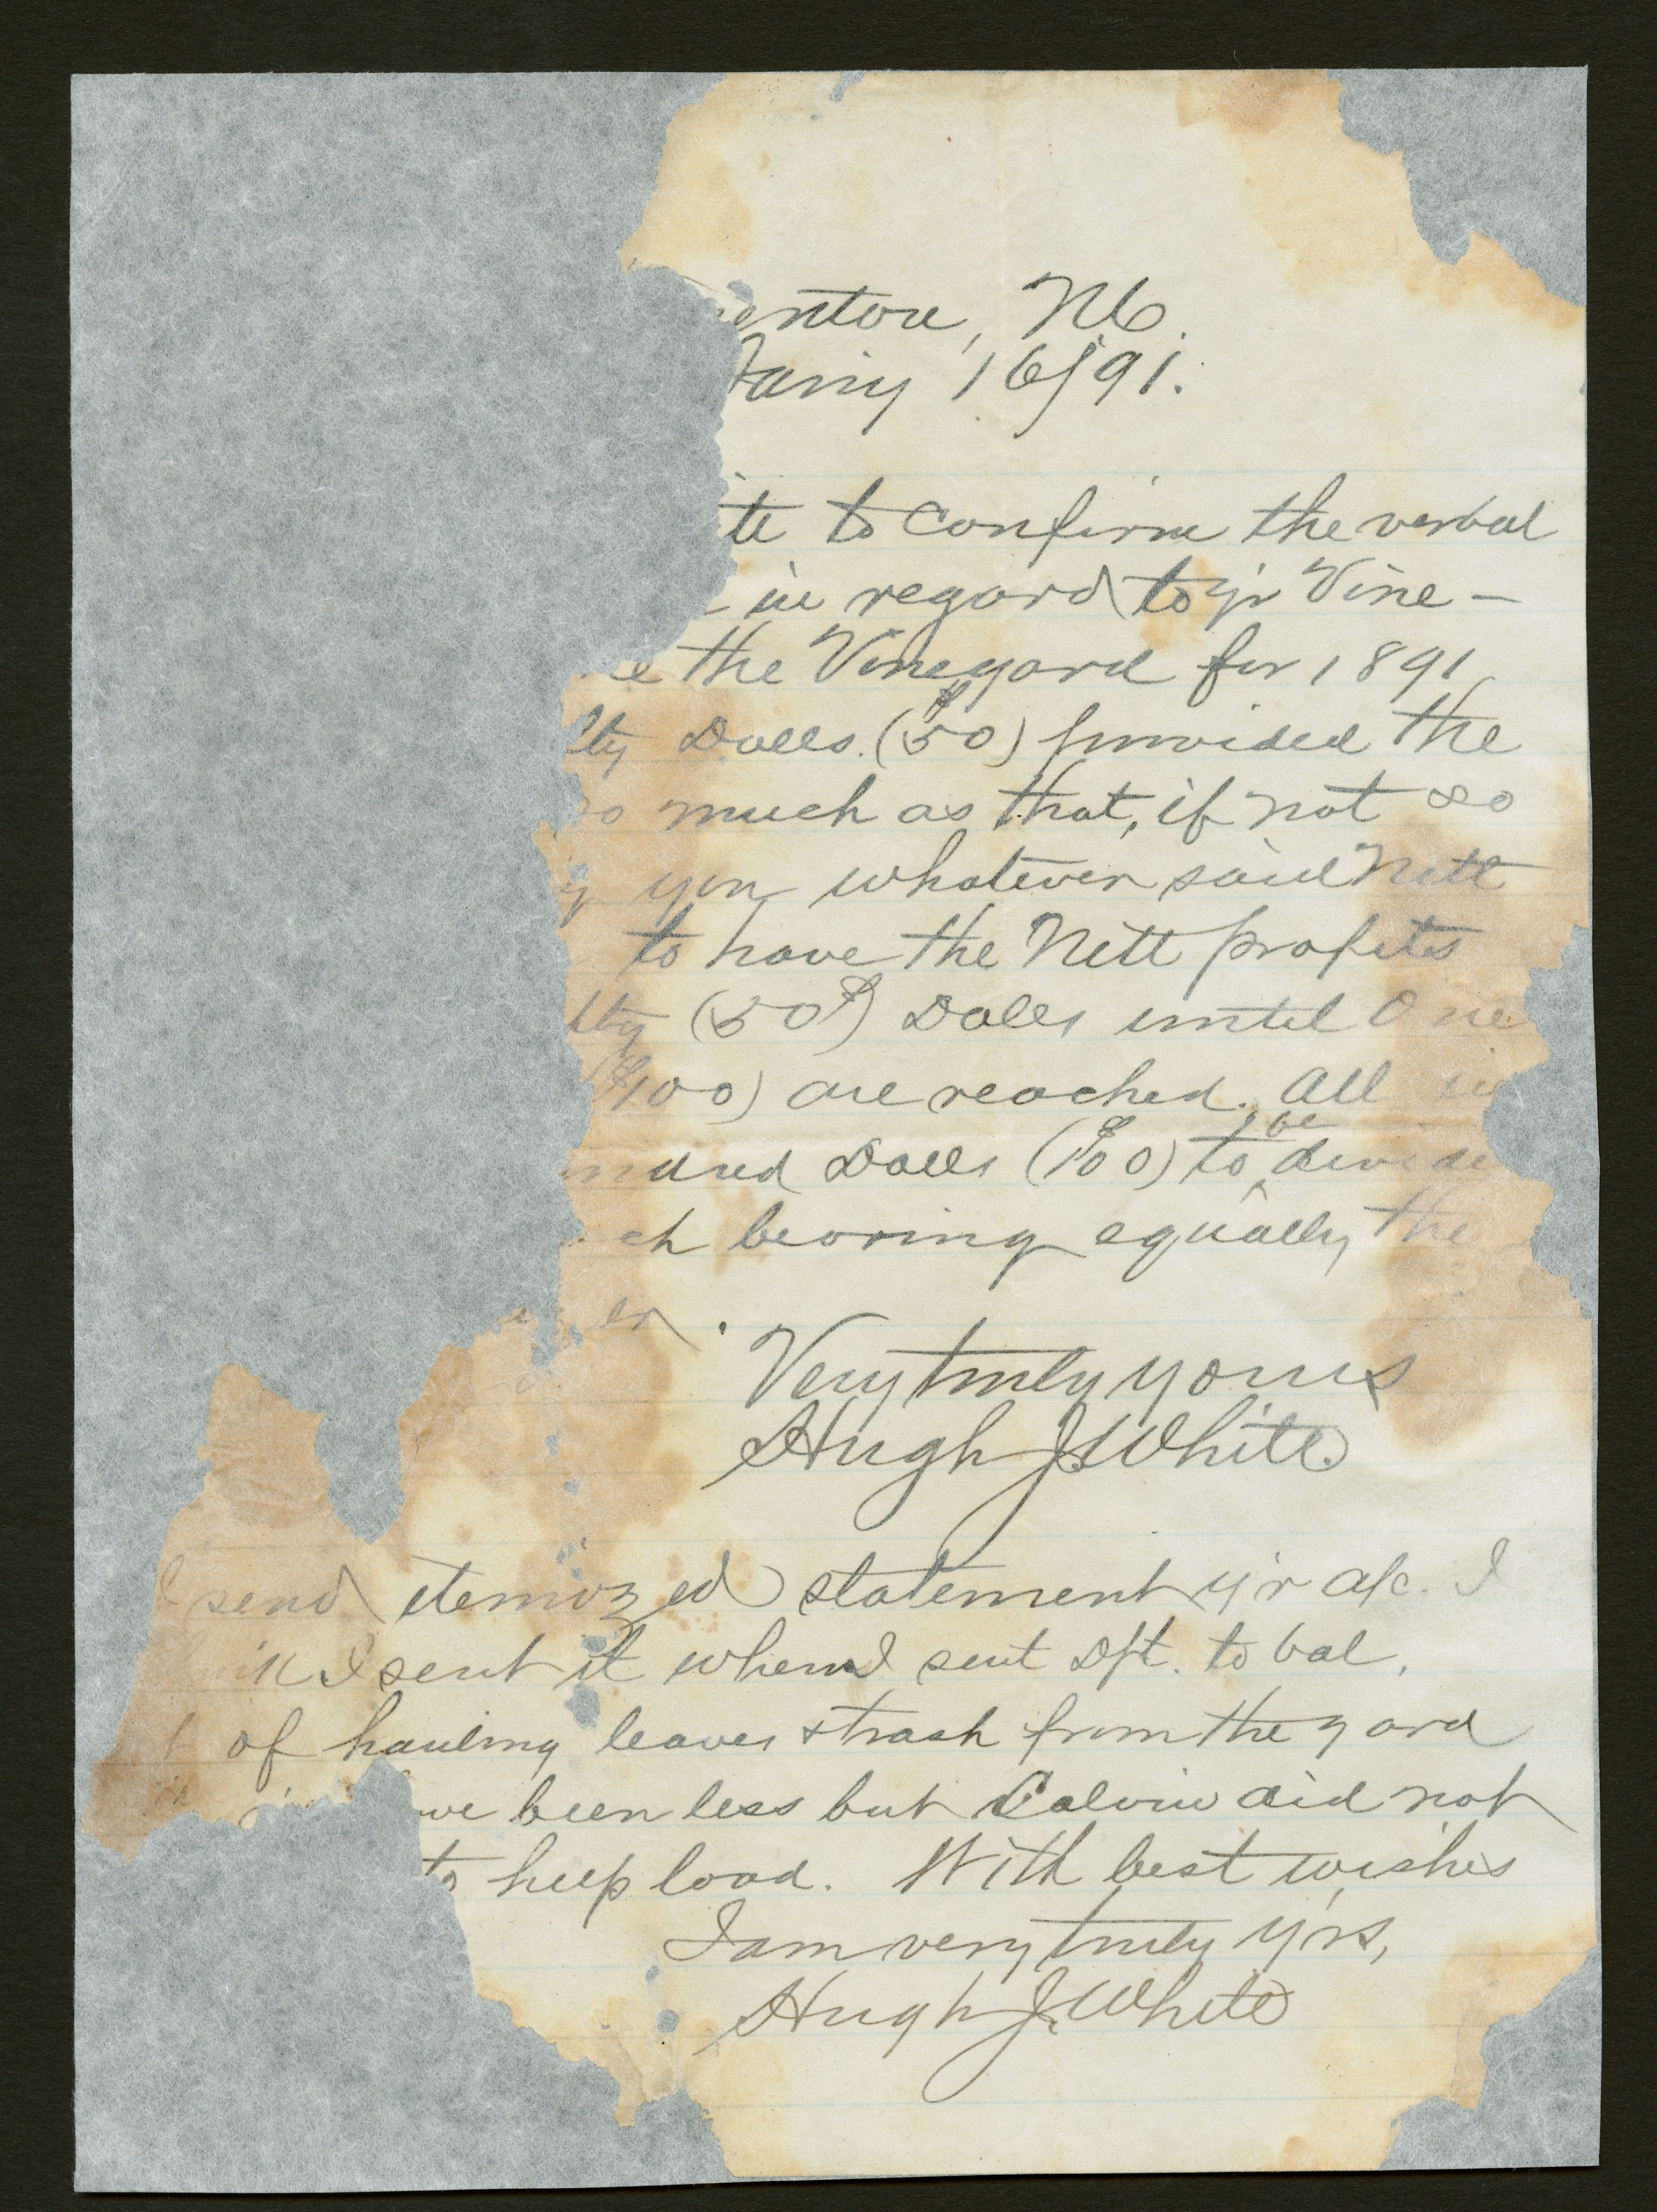 enton, N.C.
Jany 16/91.
ite to confirm the verbal
in regard to y'r Vine-
the Vineyard for 1891
fty Dolls. ($50) provided the
so much as that, if not so
y you whatever said Nett
to have the Nett profits
fty (50$) Dolls until One
($100) are reached. All
undred Dolls ($100) to be divide
ch bearing equally the
Very truly yours
Hugh J. White
I send itemized statement y'r a/c. I
I sent it when I sent Dft. to bal.
of hauling leaves & trash from the yard
ve been less but Calvin did not
to heep load. With best wishes
I am very truly y'rs,
Hugh J. White